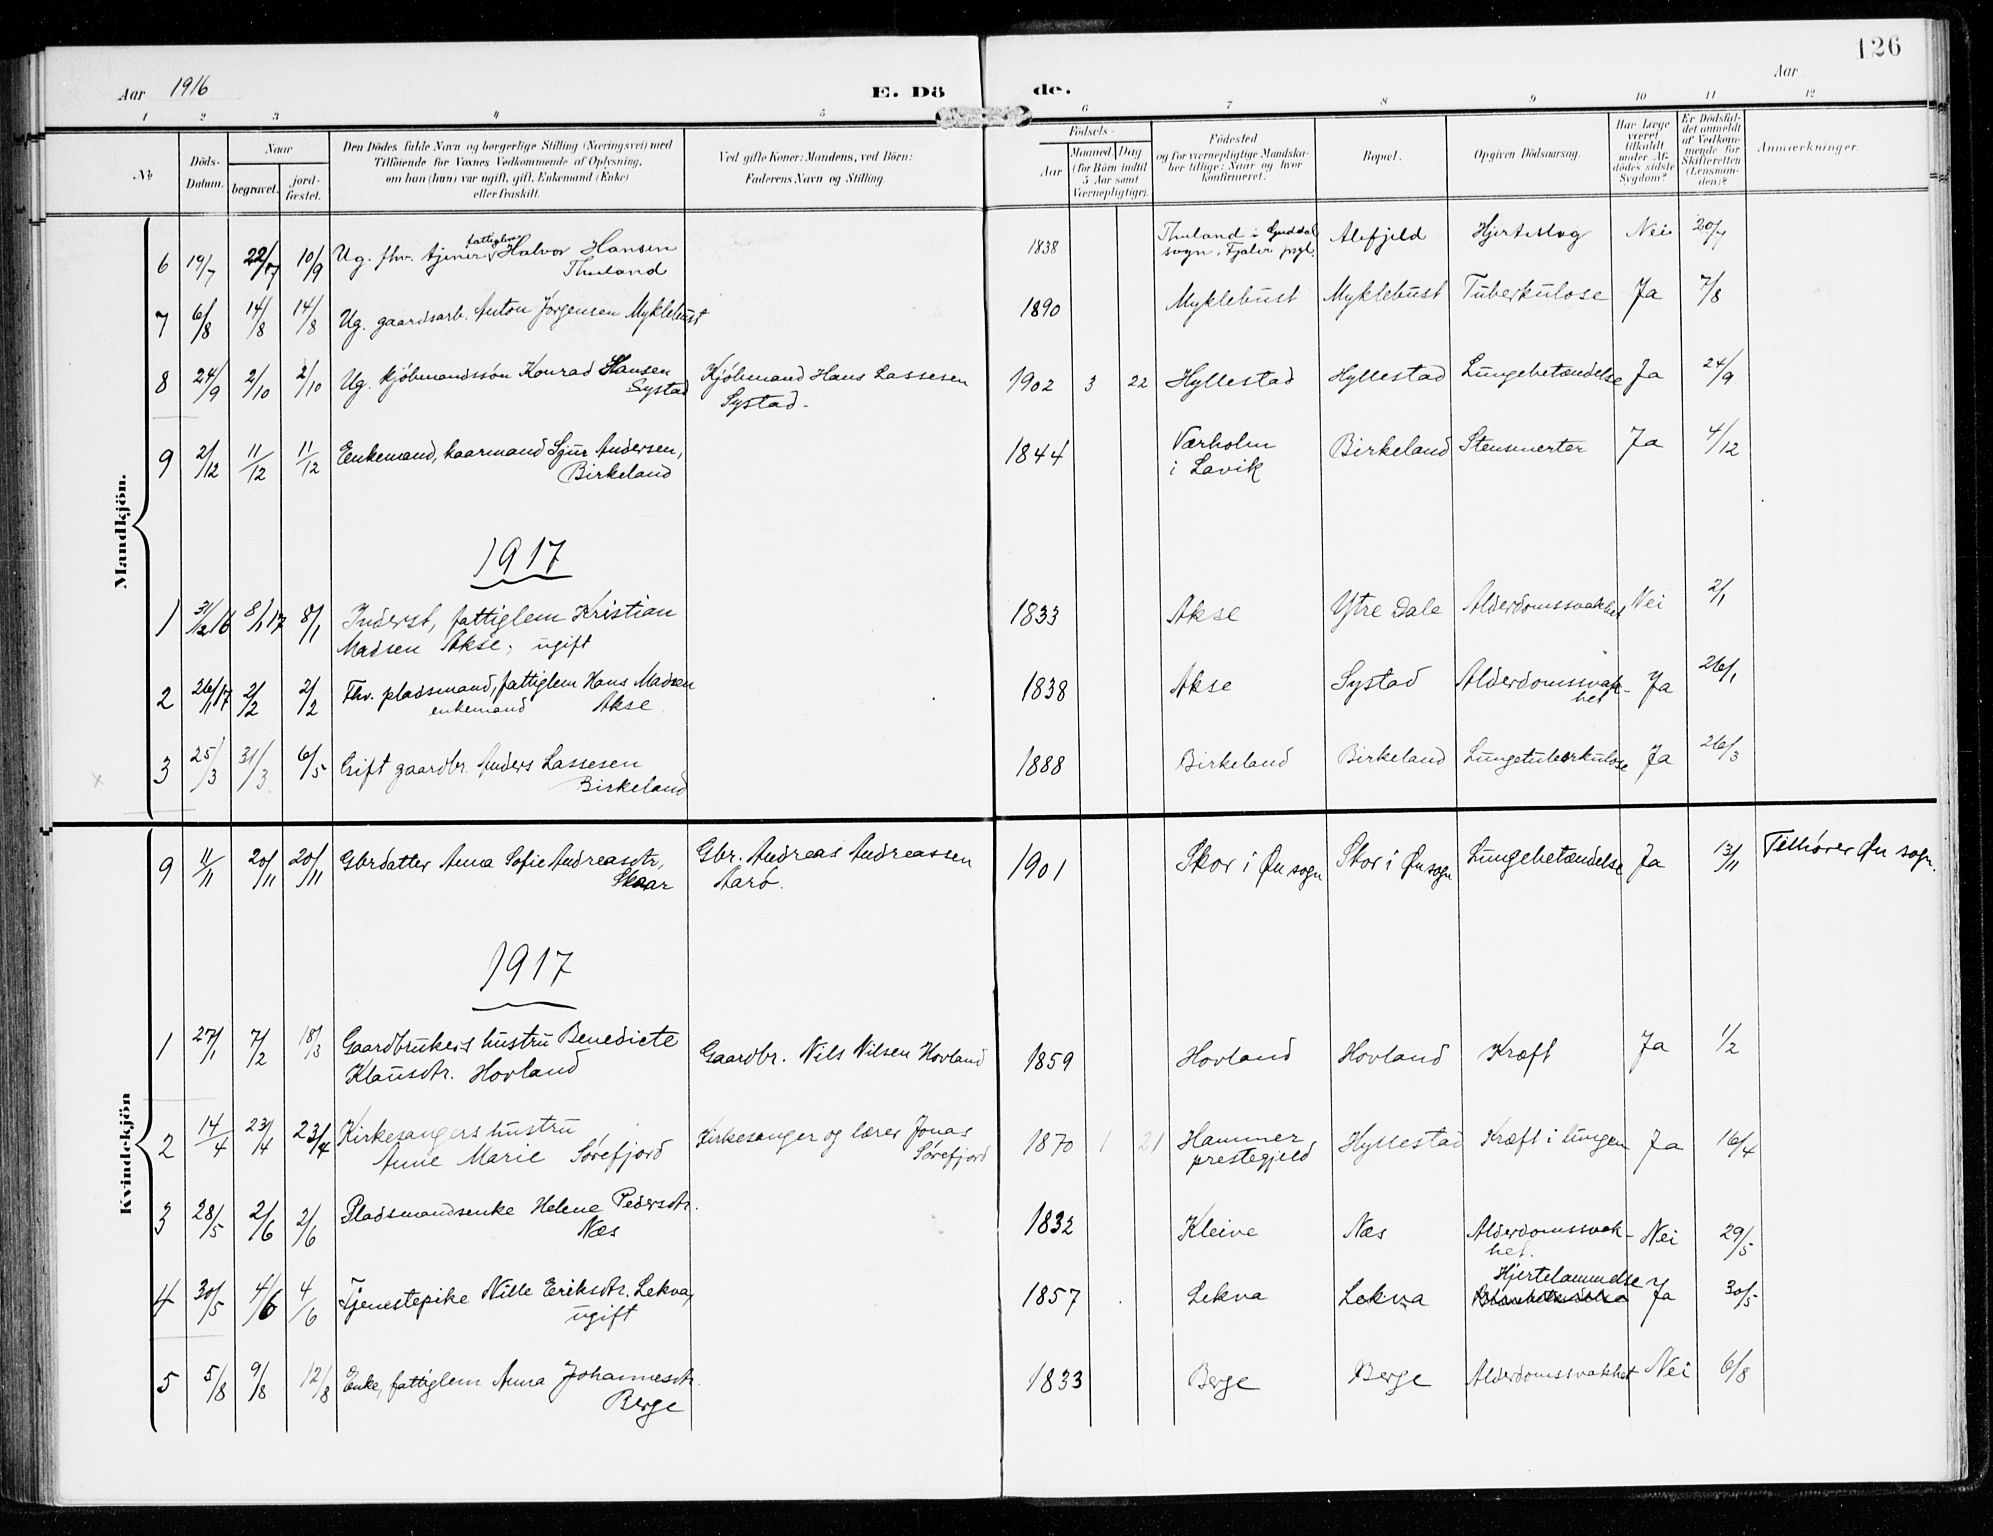 126
Aar 1916
E. Dö
de.
Aar
1 2 3 4 5 6 7 8 9 10 11 12
No
Döds-
Datum.
Naar
begravet.
jord-
fæstet.
Den Dödes fulde Navn og borgerlige Stilling (Næringsvei) med
Tilföiende for Voxnes Vedkommende af Oplysning,
om han (hun) var ugift, gift, Enkemand (Enke)
eller fraskilt.
Ved gifte Koner: Mandens, ved Börn:
Faderens Navn og Stilling.
Födsels-
Aar
Maaned
Dag
(for Börn indtil
5 Aar samt
Værnepligtige).
Födested
og for værnepligtige Mandska-
ber tillige: Naar og hvor
konfirmeret.
Bopæl.
Opgiven Dödsaarsag.
Har Læge
været
tilkaldt
under Af-
dödes sidste
Sygdom?
Er Dödsfal-
det anmeldt
af Vedkom-
mende for
Skifteretten
(Lensman-
den)?
Anmerkninger.
Mandkjön.
6 19/7 22/7 10/9 Ug. fhv. tjener, fattiglem Halvor Hansen
Thuland
1838 Thuland i Guddal
sogn, Fjaler prgl. Alefjeld Hjerteslag Nei 20/7
7 6/8 14/8 14/8 Ug. gaardsarb. Anton Jørgensen Myklebust 1890 Myklebust Myklebust Tuberkulose Ja 7/8
8 24/9 2/10 2/10 Ug. kjøbmandssøn Konrad Hansen
Systad
Kjøbmand Hans Lassesen
Systad.
1902 3 22 Hyllestad Hyllestad Lungebetændelse Ja 24/9
9 2/12 11/12 11/12 Enkemand, kaarmand Sjur Andersen,
Birkeland
1844 Værholm
i Lavik Birkeland Stensmerter Ja 4/12
1917
1 31/12 16 8/1 17 8/1 Inderst, fattiglem Kristian
Madsen Akse, ugift
1833 Akse Ytre Dale Alderdomssvakhet Nei 2/1
2 26/1 17 2/2 2/2 Fhv. pladsmand, fattiglem Hans Madsen
enkemand Akse
1838 Akse Systad Alderdomssvak-
het Ja 26/1
3 25/3 31/3 6/5 Gift gaardbr. Anders Lassesen
Birkeland
1888 Birkeland Birkeland Lungetuberkulose Ja 26/3
Kvindekjön
9 11/11 20/11 20/11 Gbrdatter Anna Sofie Andreasdtr,
Skaar
Gbr. Andreas Andreassen
Aarø.
1901 Skor i Øn sogn Skor i Øn sogn Lungebetændelse Ja 13/11 Tilhører Øn sogn.
1917
1 27/1 7/2 18/3 Gaardbrukers hustru Benedicte
Klausdtr. Hovland
Gaardbr. Nils Nilsen Hovland
1859 Hovland Hovland Kræft Ja 1/2
2 14/4 23/4 23/4 Kirkesangers hustru
Anne Marie Sørefjord
Kirkesanger og lærer Jonas
Sørefjord
1870 1 21 Hammer
prestegjeld Hyllestad Kræft i lungen Ja 16/4
3 28/5 2/6 2/6 Pladsmandsenke Helene Pedersdtr.
Næs
1832 Kleive Næs Alderdomssvak-
het. Nei 29/5
4 30/5 4/6 4/6 Tjenestepike Nille Eriksdtr. Lekva,
ugift
1857 Lekva Lekva Hjertelammelse Ja 30/5
5 5/8 9/8 12/8 Enke, fattiglem Anna Johannesdtr.
Berge
1833 Berge Berge Alderdomssvakhet Nei 6/8